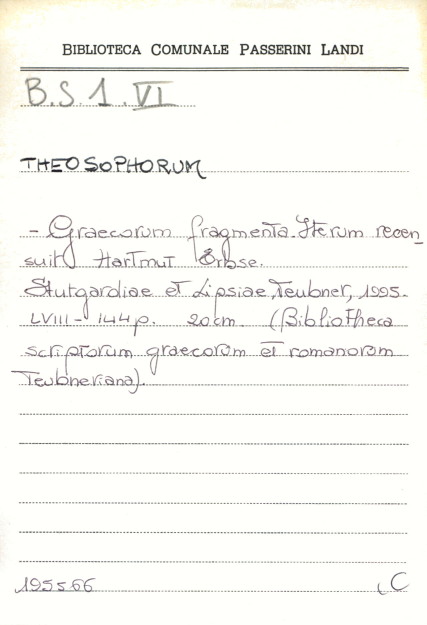 BIBLIOTECA COMUNALE PASSERINI LANDI
B.S.1.VI
THEOSOPHORUM
- Graecorum fragmenta. Iterum recen_
suit Hartmut Erbse.
Stutgardiae et Lipsiae, Teubner, 1995.
LVIII - 144 p. 20 cm. (Bibliotheca
scriptorum graecorum et romanorum
Teubneriana).
195566 C